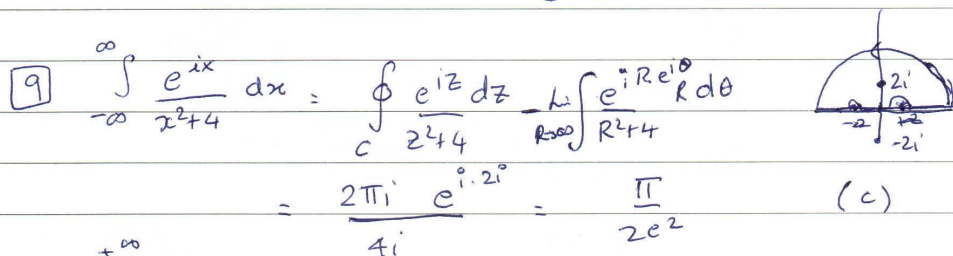 9 ∫_{-∞}^{∞} e^{ix}/(x²+4) dx = ∮_C e^{iz} dz/(z²+4) - Li_{R→∞} ∫ e^{iRe^{iθ}} R dθ/(R²+4) 2i -2i
= 2πi e^{i·2i}/4i = π/2e² (c)
+∞